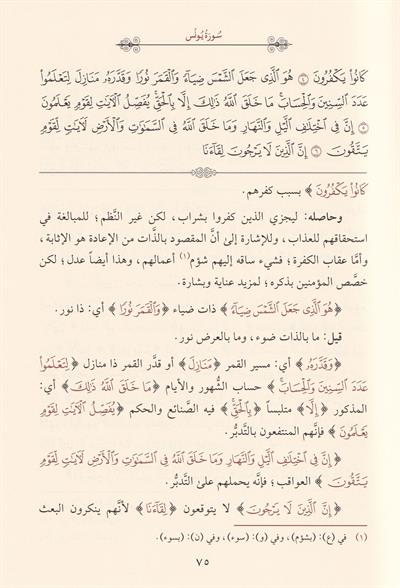 سُورَةُ يُونُس
كَانُواْ يَكۡفُرُونَ ٤ هُوَ ٱلَّذِي جَعَلَ ٱلشَّمۡسَ ضِيَآءٗ وَٱلۡقَمَرَ نُورٗا وَقَدَّرَهُۥ مَنَازِلَ لِتَعۡلَمُواْ
عَدَدَ ٱلسِّنِينَ وَٱلۡحِسَابَۚ مَا خَلَقَ ٱللَّهُ ذَٰلِكَ إِلَّا بِٱلۡحَقِّۚ يُفَصِّلُ ٱلۡأٓيَٰتِ لِقَوۡمٖ يَعۡلَمُونَ
٥ إِنَّ فِي ٱخۡتِلَٰفِ ٱلَّيۡلِ وَٱلنَّهَارِ وَمَا خَلَقَ ٱللَّهُ فِي ٱلسَّمَٰوَٰتِ وَٱلۡأَرۡضِ لَأٓيَٰتٖ لِّقَوۡمٖ
يَتَّقُونَ ٦ إِنَّ ٱلَّذِينَ لَا يَرۡجُونَ لِقَآءَنَا
كَانُواْ يَكۡفُرُونَ ﴾ بسبب كفرهم.
وحاصله: ليجزي الذين كفروا بشراب، لكن غير النَّظم؛ للمبالغة في
استحقاقهم للعذاب، وللإشارة إلى أنَّ المقصود بالذَّات من الإعادة هو الإثابة،
وأمَّا عقاب الكفرة؛ فشيء ساقه إليهم شؤم(١) أعمالهم، وهذا أيضاً عدل؛ لكن
خصَّص المؤمنين بذكره؛ لمزيد عناية وبشارة.
﴿هُوَ ٱلَّذِي جَعَلَ ٱلشَّمۡسَ ضِيَآءٗ﴾ ذات ضياء ﴿وَٱلۡقَمَرَ نُورٗا﴾ أي: ذا نور.
قيل: ما بالذات ضوء، وما بالعرض نور.
﴿وَقَدَّرَهُۥ﴾ أي: مسير القمر ﴿مَنَازِلَ﴾ أو قدَّر القمر ذا منازل ﴿لِتَعۡلَمُواْ
عَدَدَ ٱلسِّنِينَ وَٱلۡحِسَابَۚ﴾ حساب الشُّهور والأيام ﴿مَا خَلَقَ ٱللَّهُ ذَٰلِكَ﴾ أي:
المذكور ﴿إِلَّا﴾ متلبساً ﴿بِٱلۡحَقِّۚ﴾ فيه الصَّنائع والحكم ﴿يُفَصِّلُ ٱلۡأٓيَٰتِ لِقَوۡمٖ
يَعۡلَمُونَ﴾ فإنَّهم المنتفعون بالتَّدبُّر.
﴿إِنَّ فِي ٱخۡتِلَٰفِ ٱلَّيۡلِ وَٱلنَّهَارِ وَمَا خَلَقَ ٱللَّهُ فِي ٱلسَّمَٰوَٰتِ وَٱلۡأَرۡضِ لَأٓيَٰتٖ لِّقَوۡمٖ
يَتَّقُونَ﴾ العواقب؛ فإنَّه يحملهم على التَّدبُّر.
﴿إِنَّ ٱلَّذِينَ لَا يَرۡجُونَ﴾ لا يتوقعون ﴿لِقَآءَنَا﴾ لأنَّهم ينكرون البعث
(١) في (ع): (بشؤم)، وفي (و): (سوء)، وفي (ن): (بسوء).
٧٥